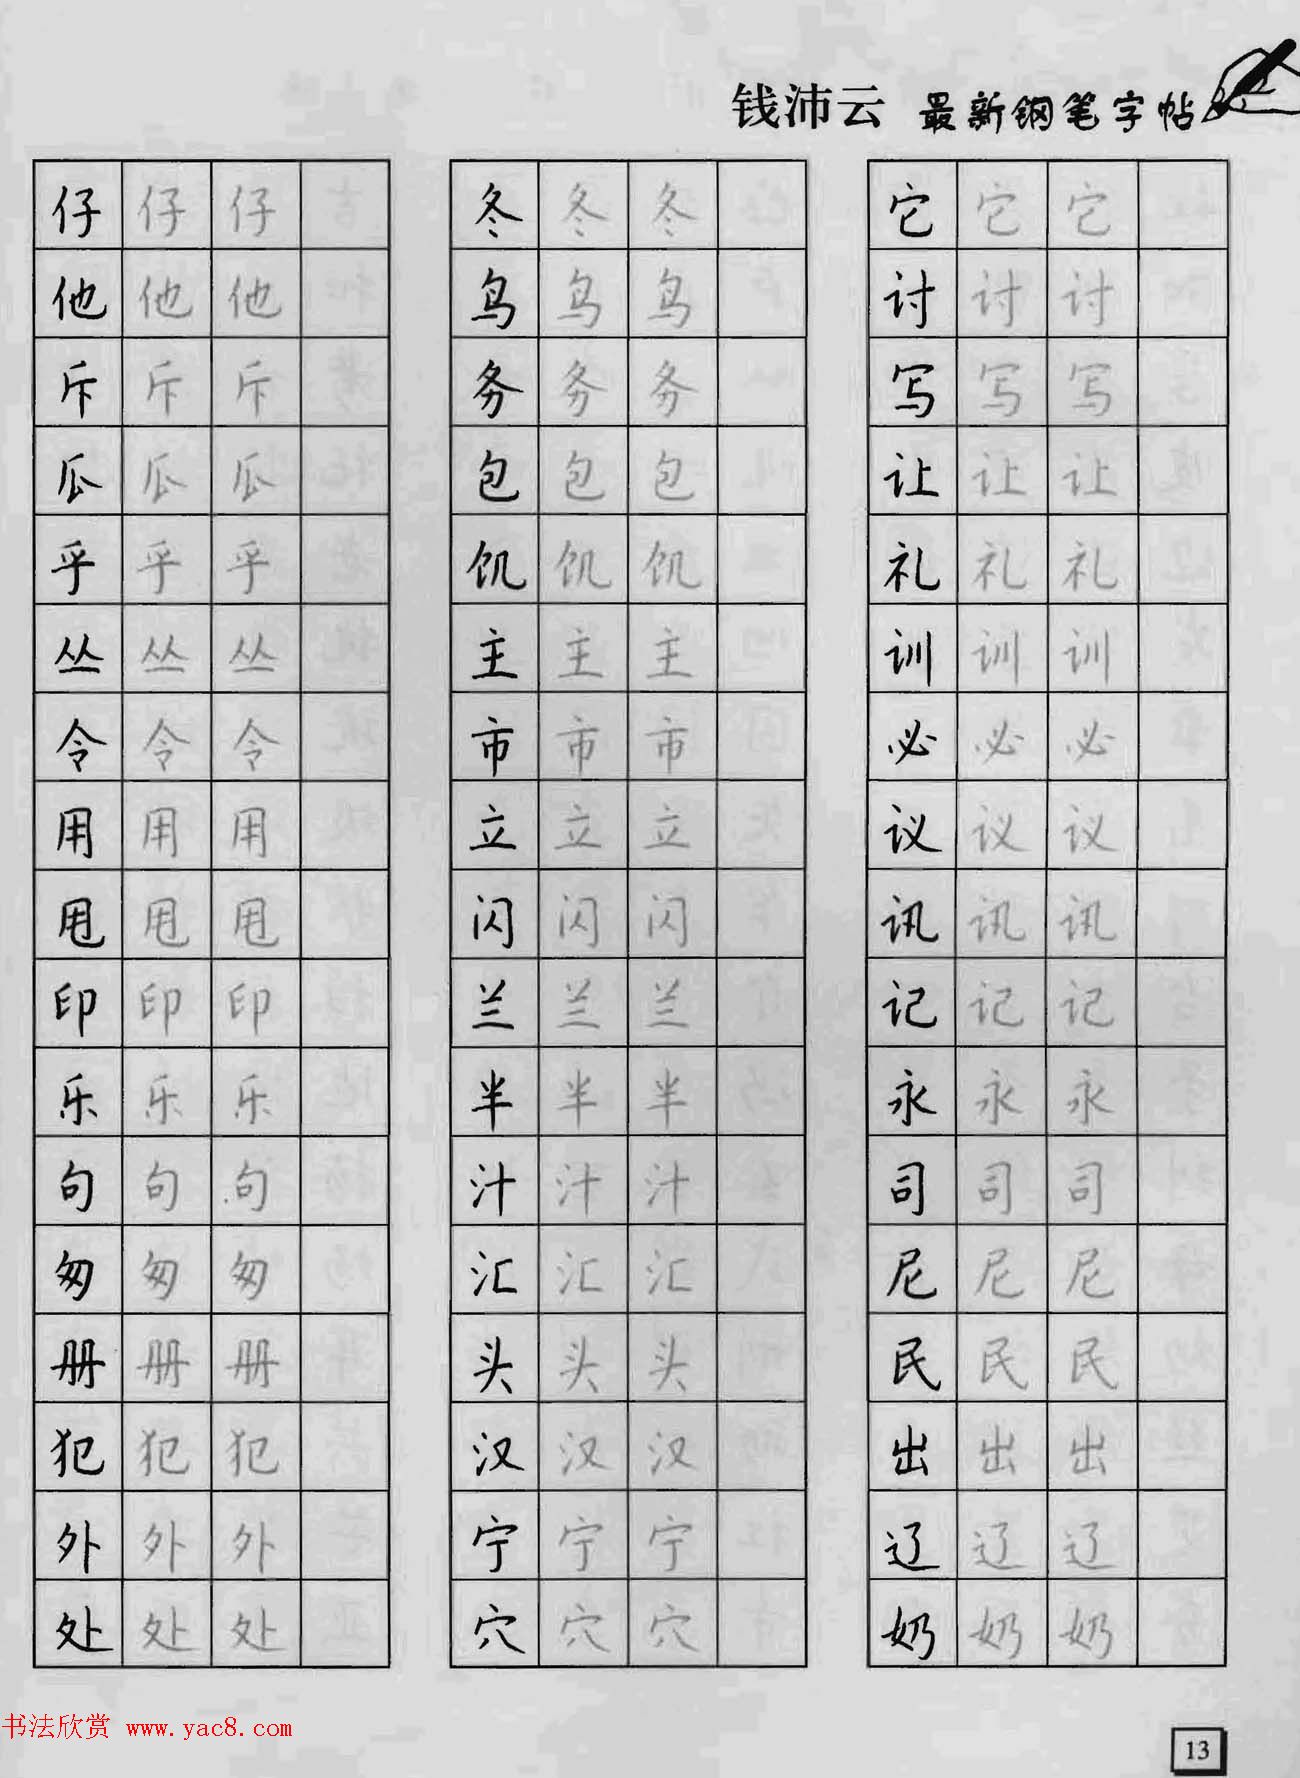 钱沛云 最新钢笔字帖
仔 仔 仔 冬 冬 冬 它 它 它
他 他 他 鸟 鸟 鸟 讨 讨 讨
斥 斥 斥 务 务 务 写 写 写
瓜 瓜 瓜 包 包 包 让 让 让
乎 乎 乎 饥 饥 饥 礼 礼 礼
丛 丛 丛 主 主 主 训 训 训
令 令 令 市 市 市 必 必 必
用 用 用 立 立 立 议 议 议
甩 甩 甩 闪 闪 闪 讯 讯 讯
印 印 印 兰 兰 兰 记 记 记
乐 乐 乐 半 半 半 永 永 永
句 句 句 汁 汁 汁 司 司 司
匆 匆 匆 汇 汇 汇 尼 尼 尼
册 册 册 头 头 头 民 民 民
犯 犯 犯 汉 汉 汉 出 出 出
外 外 外 宁 宁 宁 辽 辽 辽
处 处 处 穴 穴 穴 奶 奶 奶
书法欣赏 www.yac8.com
13